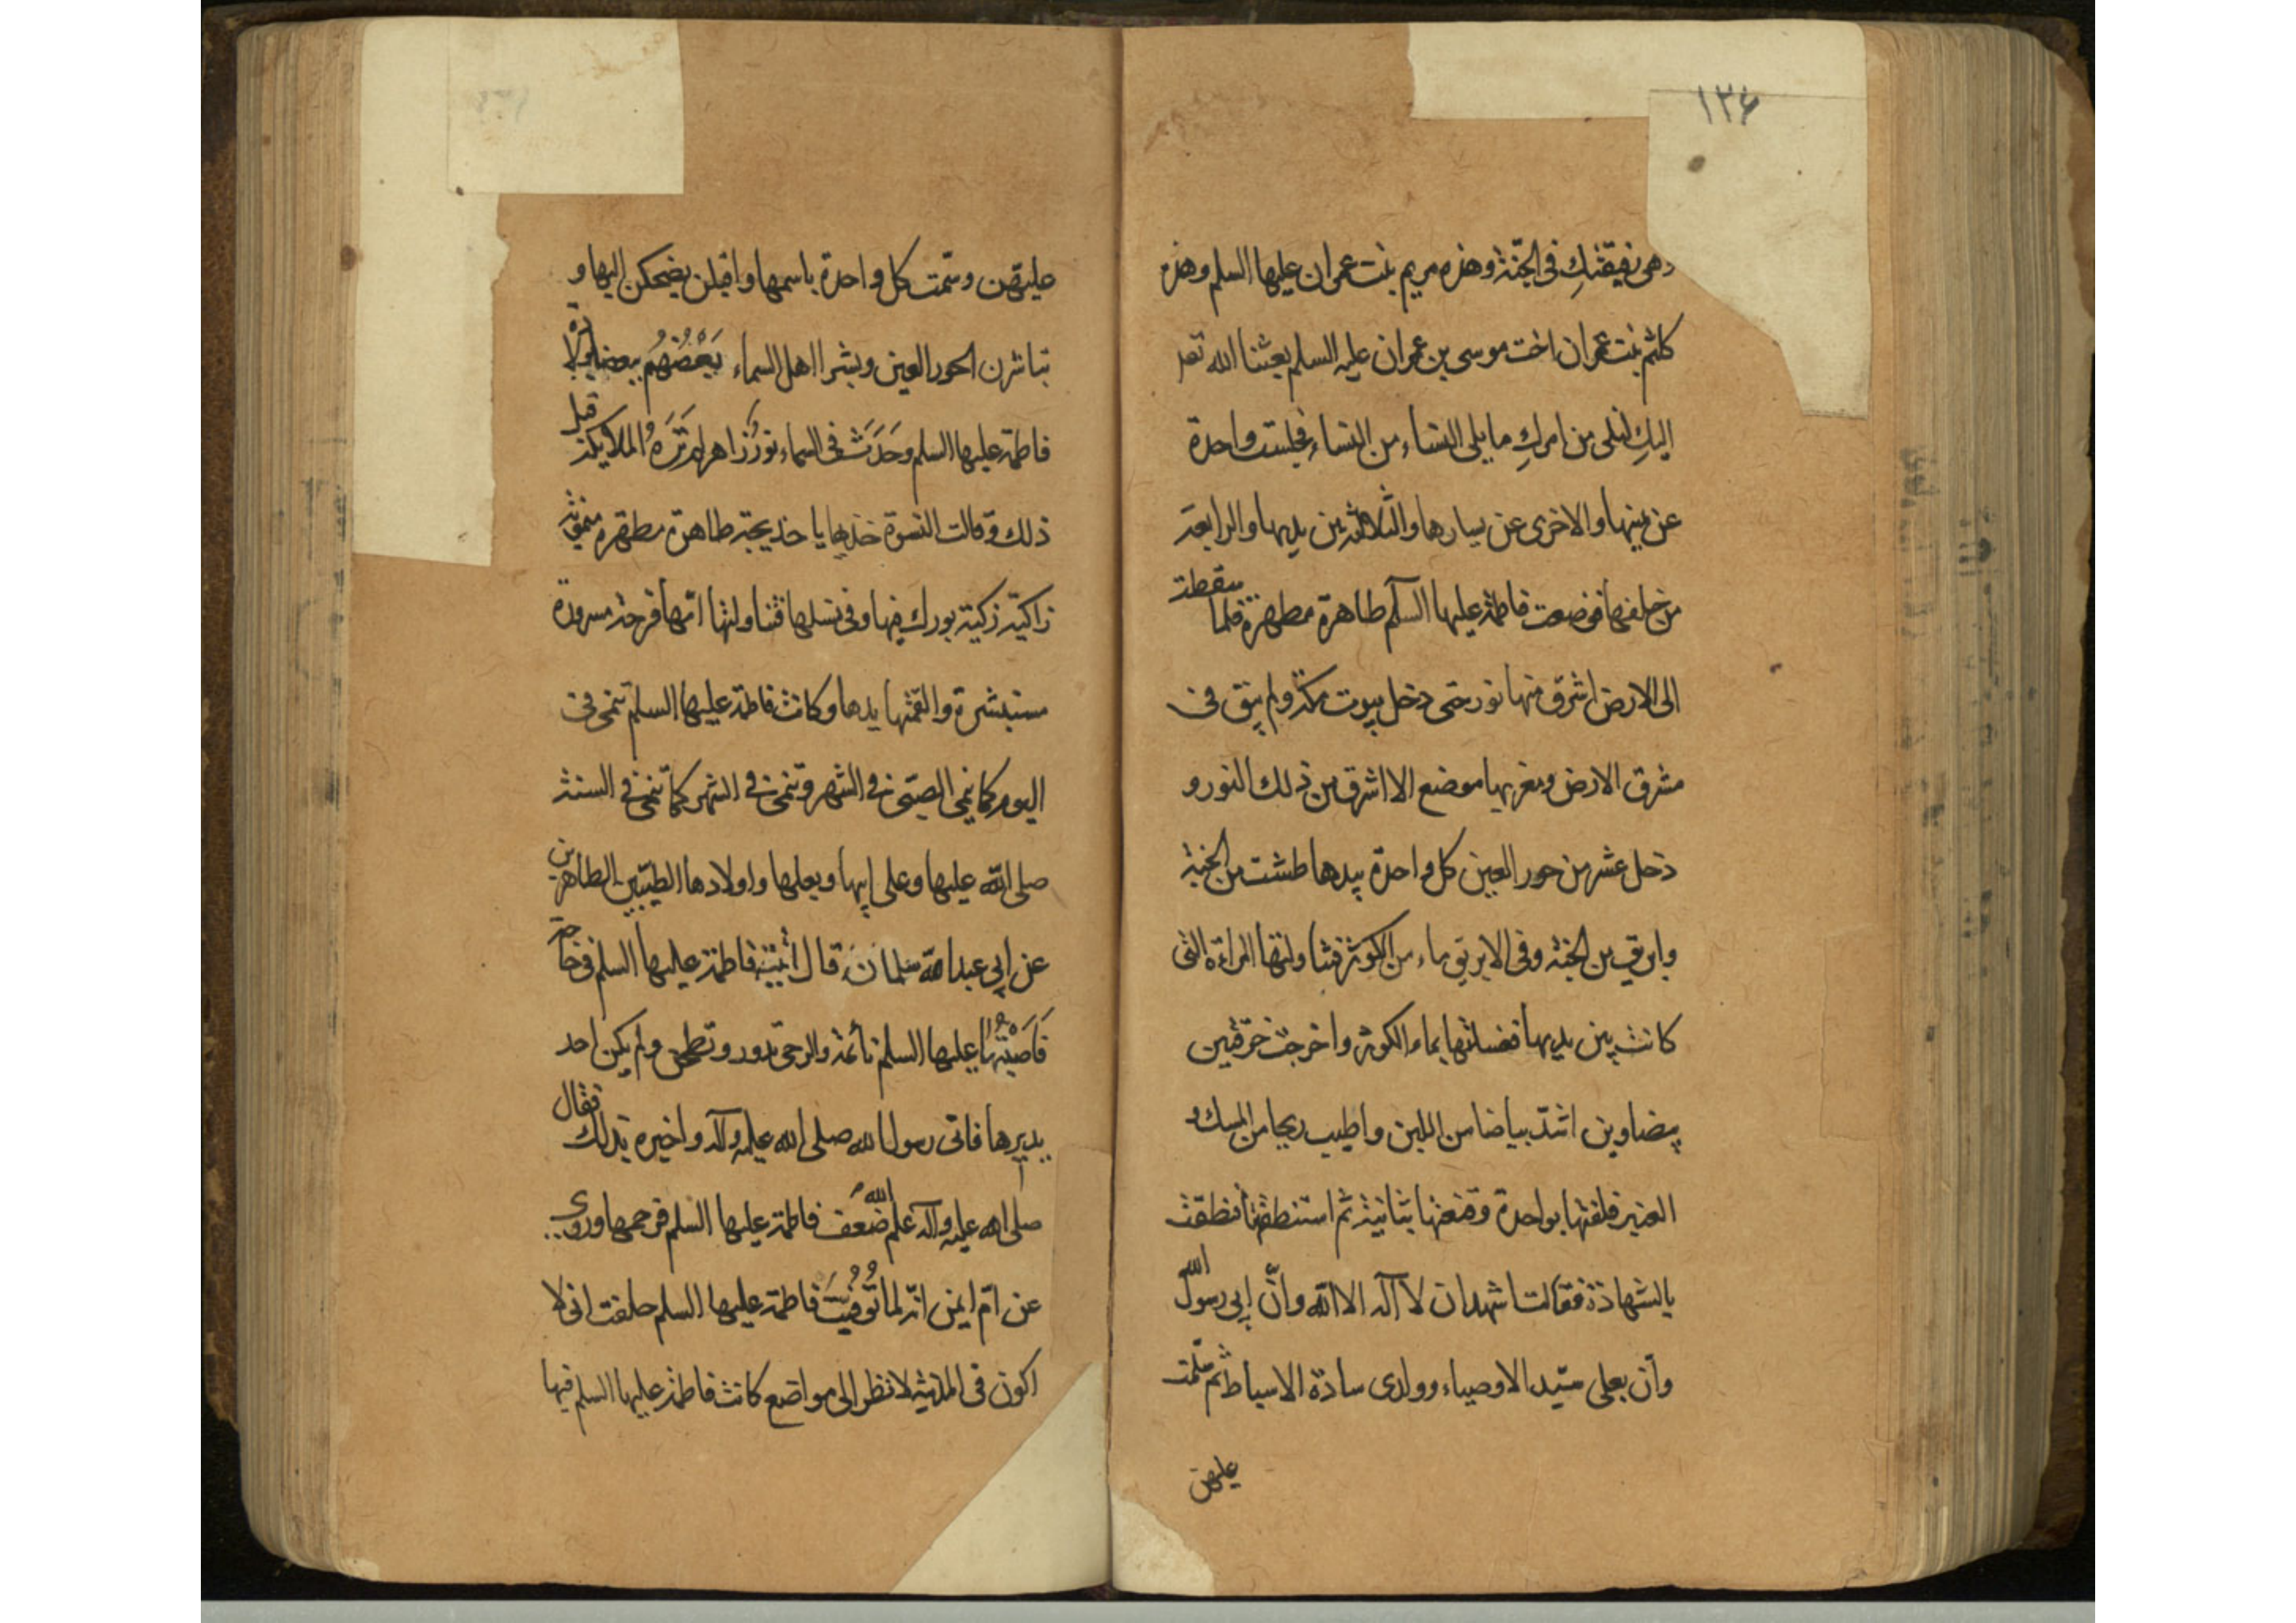 ١٣۶
وهى رفيقتكِ فى الجنّة وهذه مريم بنت عمران عليها السلم وهذه
كلثم بنت عمران اخت موسى بن عمران عليه السلم بعثنا الله تعـ
اليكِ لنلى من امركِ ما يلى النساء من النساء فجلست واحدة
عن يمينها والاخرى عن يسارها والثالثة بين يديها والرابعة
من خلفها فوضعت فاطمة عليها السلم طاهرة مطهرة فلما سقطت
الى الارض اشرق منها نور حتى دخل بيوت مكة ولم يبق فى
مشرق الارض ومغربها موضع الا اشرق من ذلك النور و
دخل عشر من حور العين كل واحدة بيدها طشت من الجنة
وابريق من الجنة وفى الابريق ماء من الكوثر فتناولتها المراءة التى
كانت بين يديها فغسلتها بماء الكوثر واخرجت خرقتين
بيضاوين اشدّ بياضا من اللبن واطيب ريحا من المسك و
العنبر فلفتها بواحدة وقنعتها بثانية ثم استنطقتها فنطقت
بالشهادة فقالت اشهد ان لا اله الا الله وأنّ ابى رسول الله
وأن بعلى سيّد الاوصياء وولدى سادة الاسباط ثم سلّمت
عليهن
عليهن وسمّت كل واحدة باسمها واقبلن يضحكن اليها و
تباشرن الحور العين وبشر اهل السماء بَعْضُهُم بعضا بولادة
فاطمة عليها السلم وحَدَثَ فى السماء نورٌ زاهر لم تَرَهُ الملائكة قبل
ذلك وقالت النسوة خذيها يا خديجة طاهرة مطهرة ميمونة
زاكيّة زكية بورك فيها وفى نسلها فتناولتها امّها فرحة مسرورة
مستبشرة والقمتها يدها وكانت فاطمة عليها السلم تنمى فى
اليوم كما ينمى الصبى فى الشهر وتنمى فى الشهر كما تنمى فى السنة
صلى الله عليها وعلى ابيها وبعلها واولادها الطيّبين الطاهرين
عن ابى عبدالله سلمان قال أتيت فاطمة عليها السلم فى حاجة
فَاَصَبْتُها عليها السلم نائمة والرحى تدور وتطحن ولم يكن احد
يديرها فاتى رسول الله صلى الله عليه وآله واخبره بذلك فقال
صلى الله عليه وآله علم اللهُ ضعف فاطمة عليها السلم فرحمها وروى
عن امّ ايمن انّه لما تُوُفِّيَت فاطمة عليها السلم حلفت انى لا
اكون فى المدينة لا نظر الى مواضع كانت فاطمة عليها السلم فيها